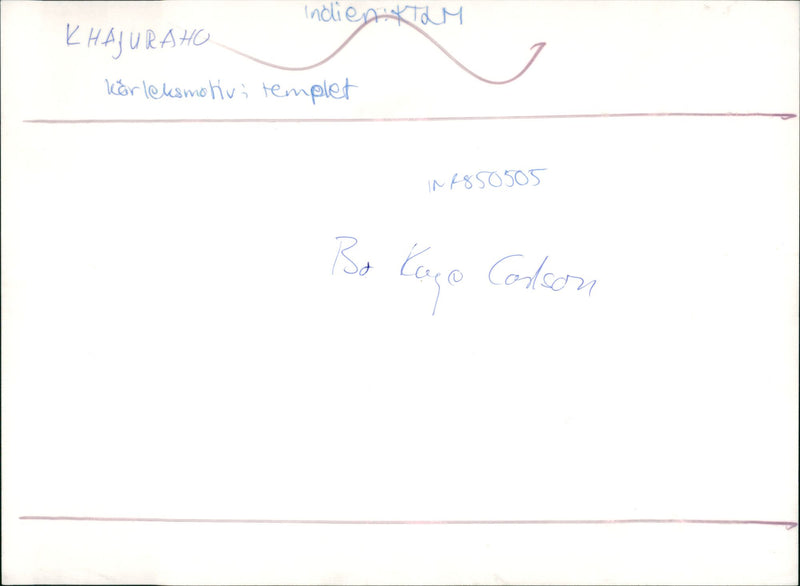 Indien:
KHAJURAHO
kärleksmotiv i templet
850505
Bo Kage Carlson